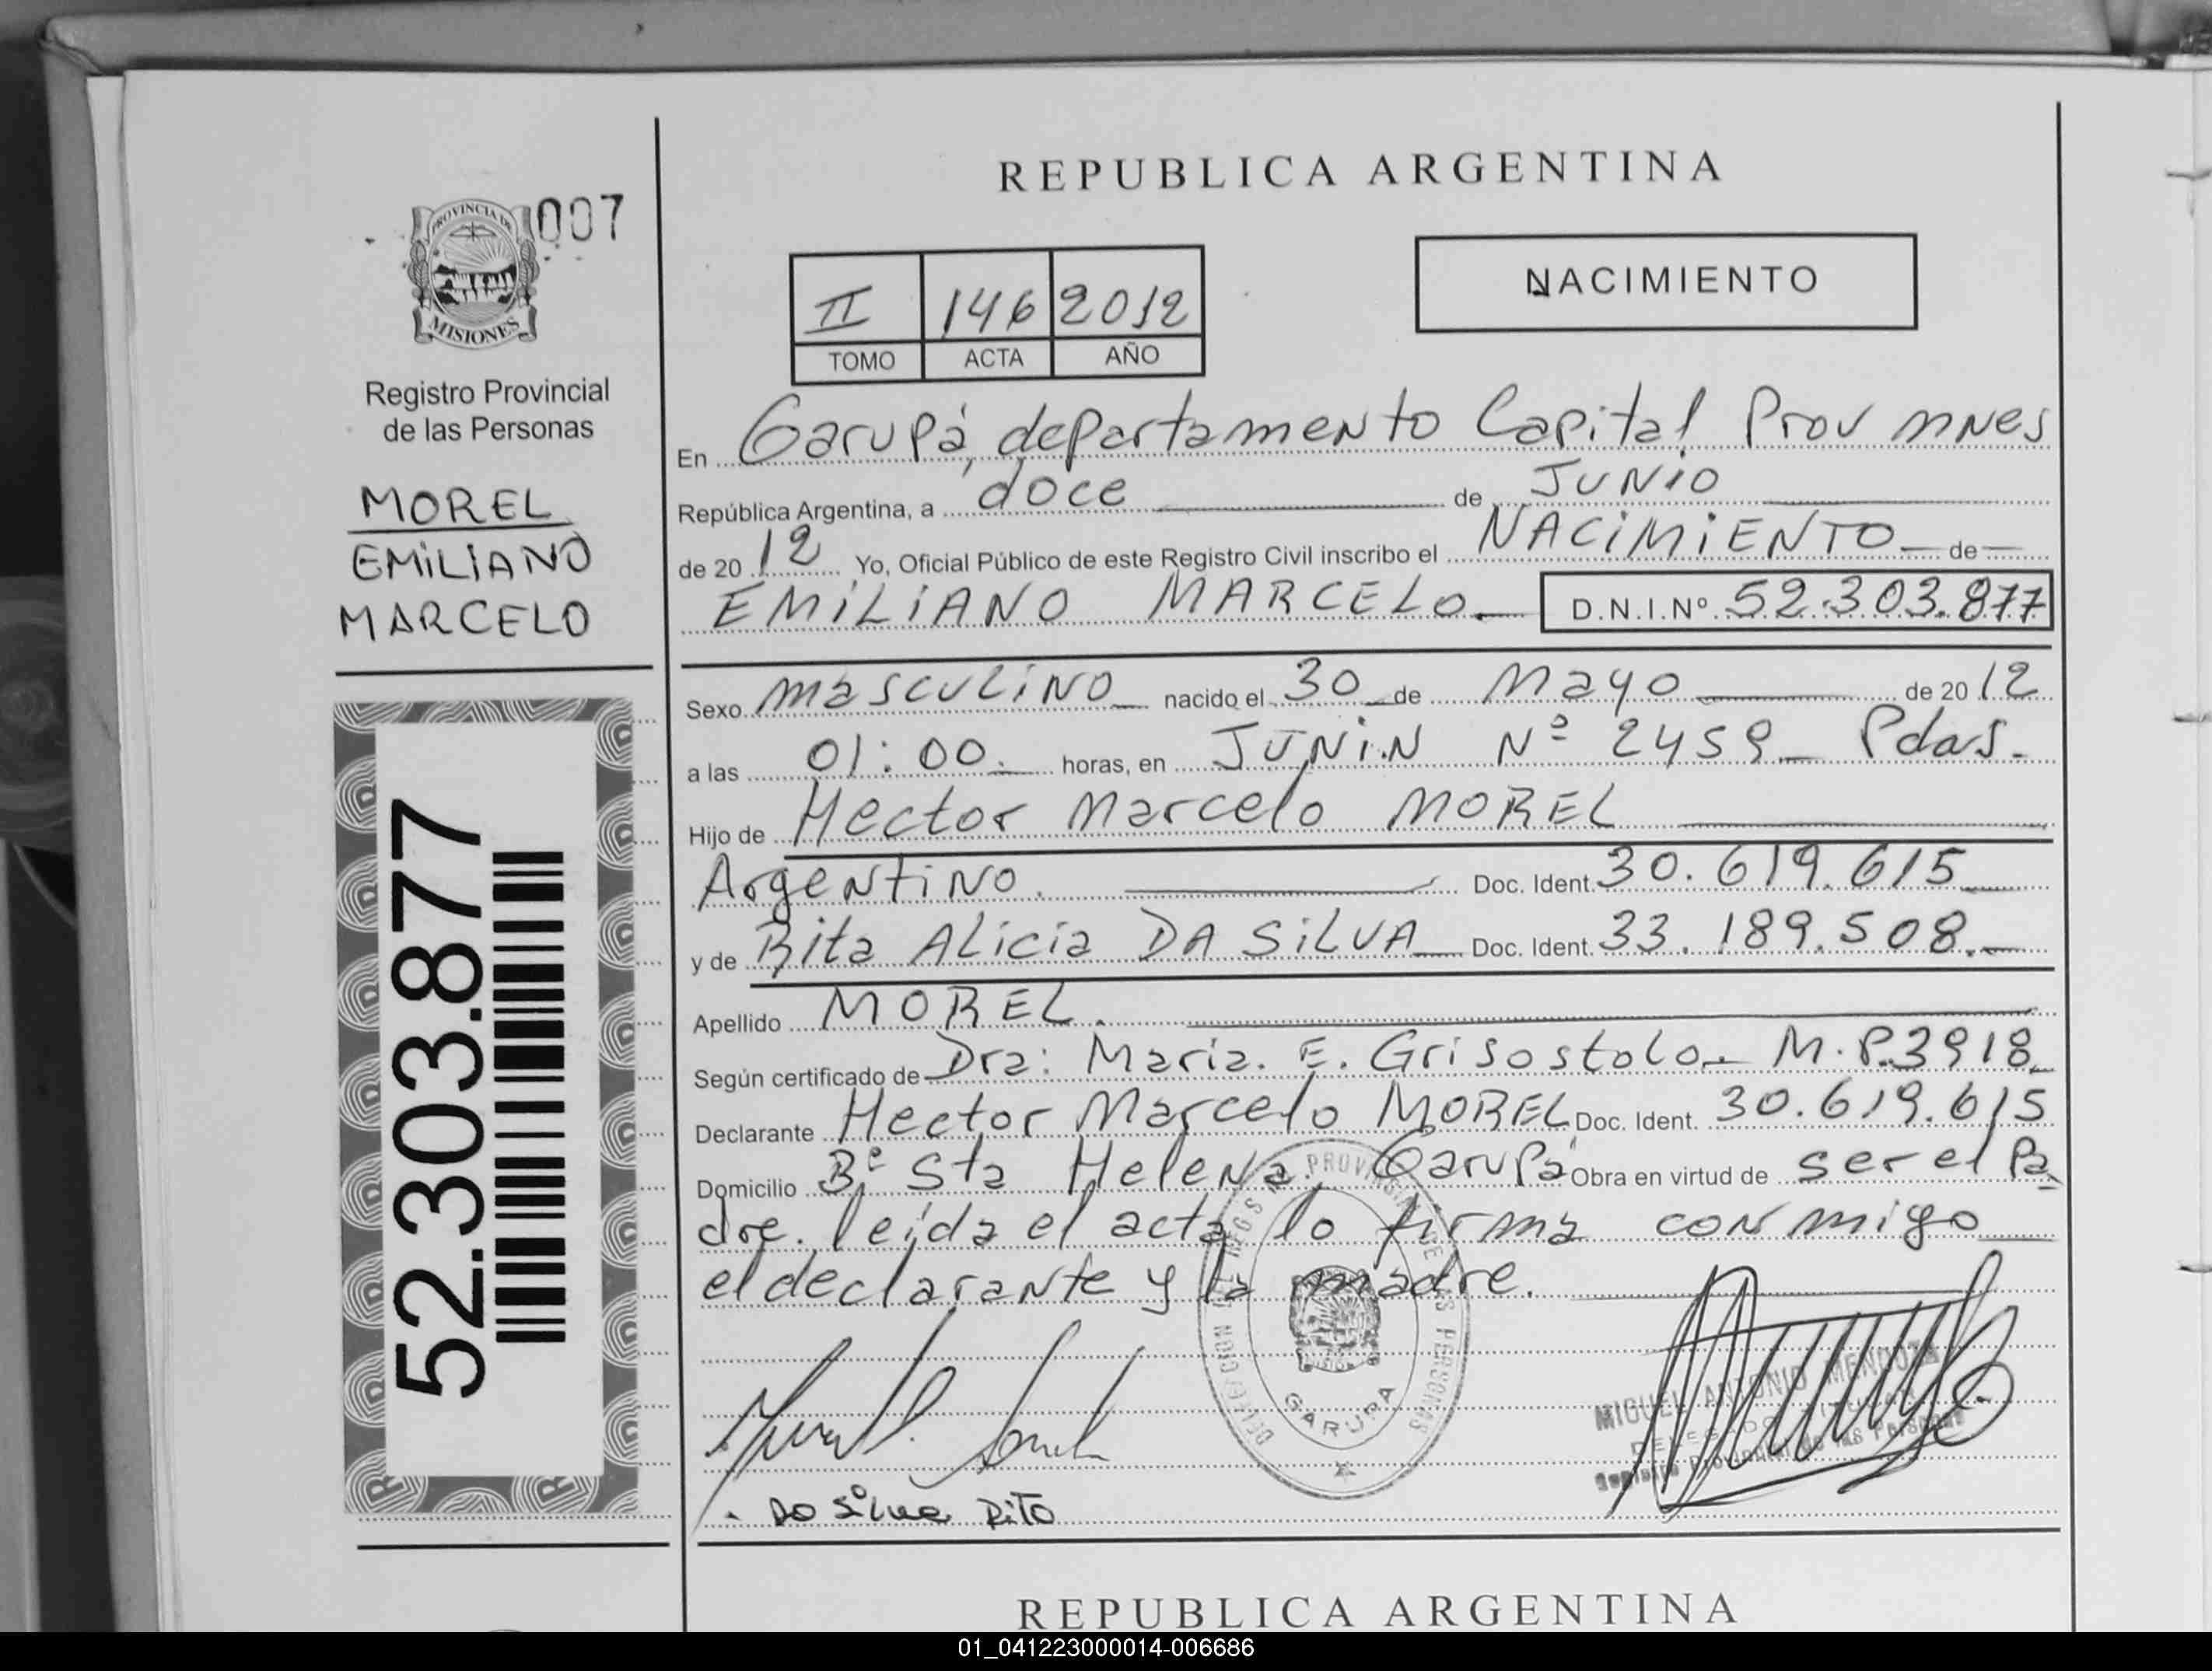 REPUBLICA ARGENTINA
007
PROVINCIA DE
MISIONES
Registro Provincial
de las Personas
MOREL
EMILIANO
MARCELO
52.303.877
II 146 2012
TOMO ACTA AÑO
NACIMIENTO
En Garupá, departamento Capital Prov mnes
República Argentina, a doce de JUNIO
de 2012 Yo, Oficial Público de este Registro Civil inscribo el NACIMIENTO de
EMILIANO MARCELO D.N.I.Nº 52.303.877
Sexo masculino nacido el 30 de Mayo de 2012
a las 01:00. horas, en JUNIN Nº 2459 Pdas.
Hijo de Hector Marcelo MOREL
Argentino. Doc. Ident. 30.619.615
y de Rita Alicia DA SILVA Doc. Ident. 33.189.508.
Apellido MOREL.
Según certificado de Dra: Maria. E. Grisostolo. M.P.3918
Declarante Hector Marcelo MOREL Doc. Ident. 30.619.615
Domicilio Bº Sta Helena. Garupá Obra en virtud de ser el Pa
dre. leida el acta lo firma conmigo
el declarante y la madre.
DELEGACION DEL REGISTRO PROVINCIAL DE LAS PERSONAS
GARUPA
MIGUEL ANTONIO MENDOZA
DELEGADO TITULAR
Registro Provincial de las Personas
Da Silva Rita
REPUBLICA ARGENTINA
01_041223000014-006686